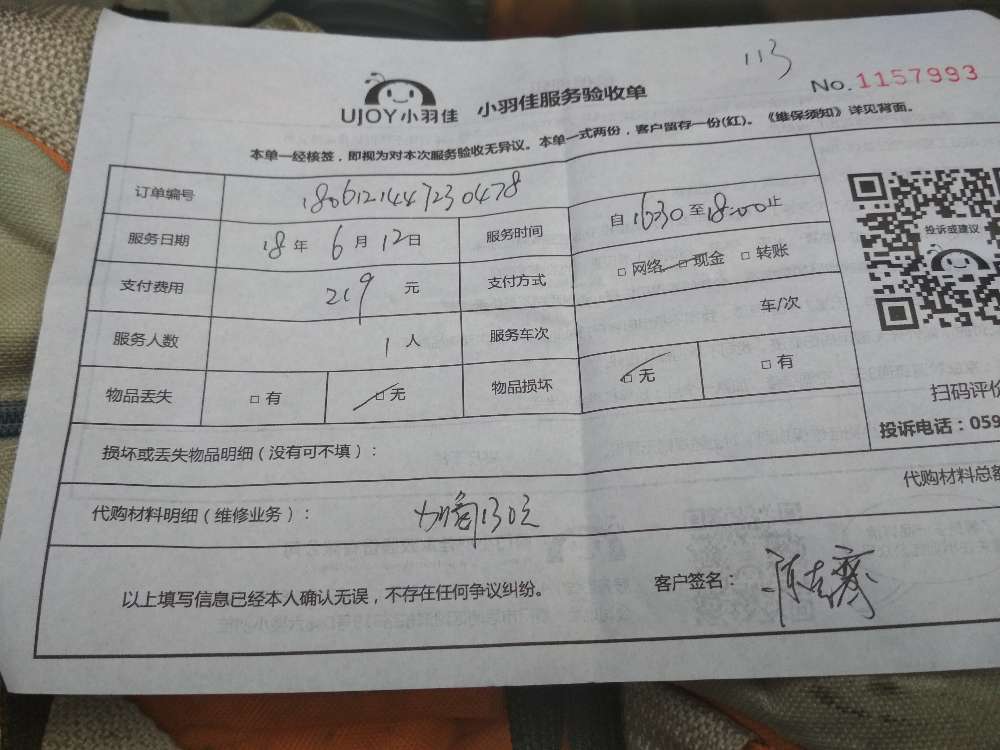 113
No.1157993
UJOY小羽佳 小羽佳服务验收单
本单一经核签，即视为对本次服务验收无异议。本单一式两份，客户留存一份(红)。《维保须知》详见背面。
订单编号 1806121447230478
服务日期 18年6月12日 服务时间 自16:30至18:00止
支付费用 219元 支付方式 □网络 □现金 □转账
服务人数 1人 服务车次 车/次
物品丢失 □有 □无 物品损坏 □无 □有
投诉或建议
扫码评价
投诉电话：059
损坏或丢失物品明细（没有可不填）：
代购材料总额
代购材料明细（维修业务）： 130元
以上填写信息已经本人确认无误，不存在任何争议纠纷。 客户签名：